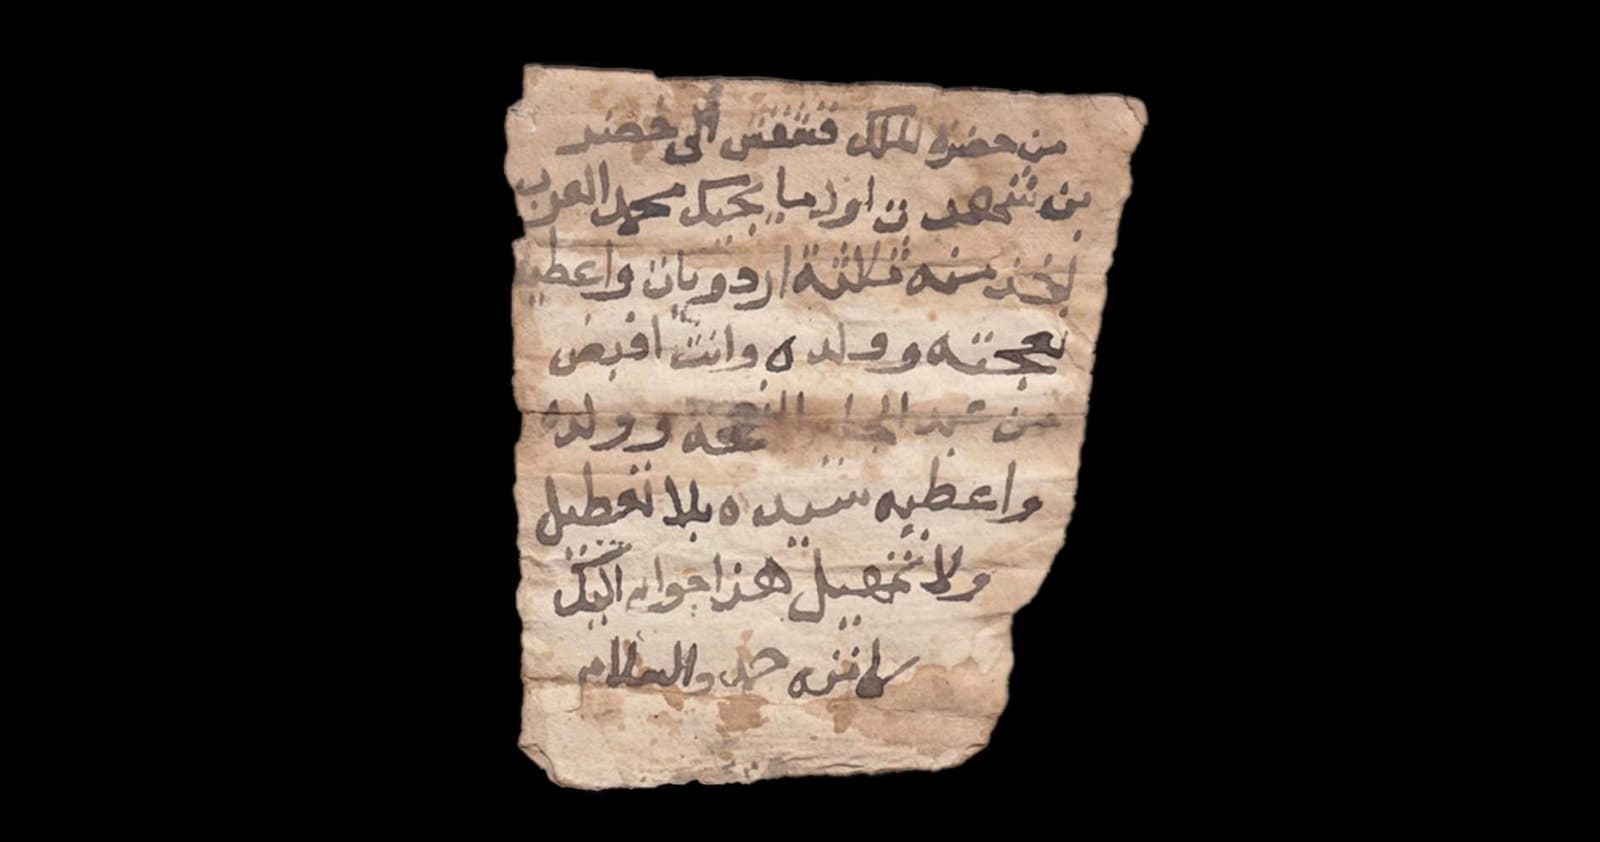 من حضرة الملك قشقش الى خضر
بن شهد ن اول ما يجيك محمد العرب
اخذ منه ثلاثة اردويات واعطيه
نعجته وولده وانت اقبض
من عبد الجابر النعجه وولده
واعطيه سيده بلا تعطيل
ولا تمهيل هذا جوابه اليك
لا تزه حد والسلام